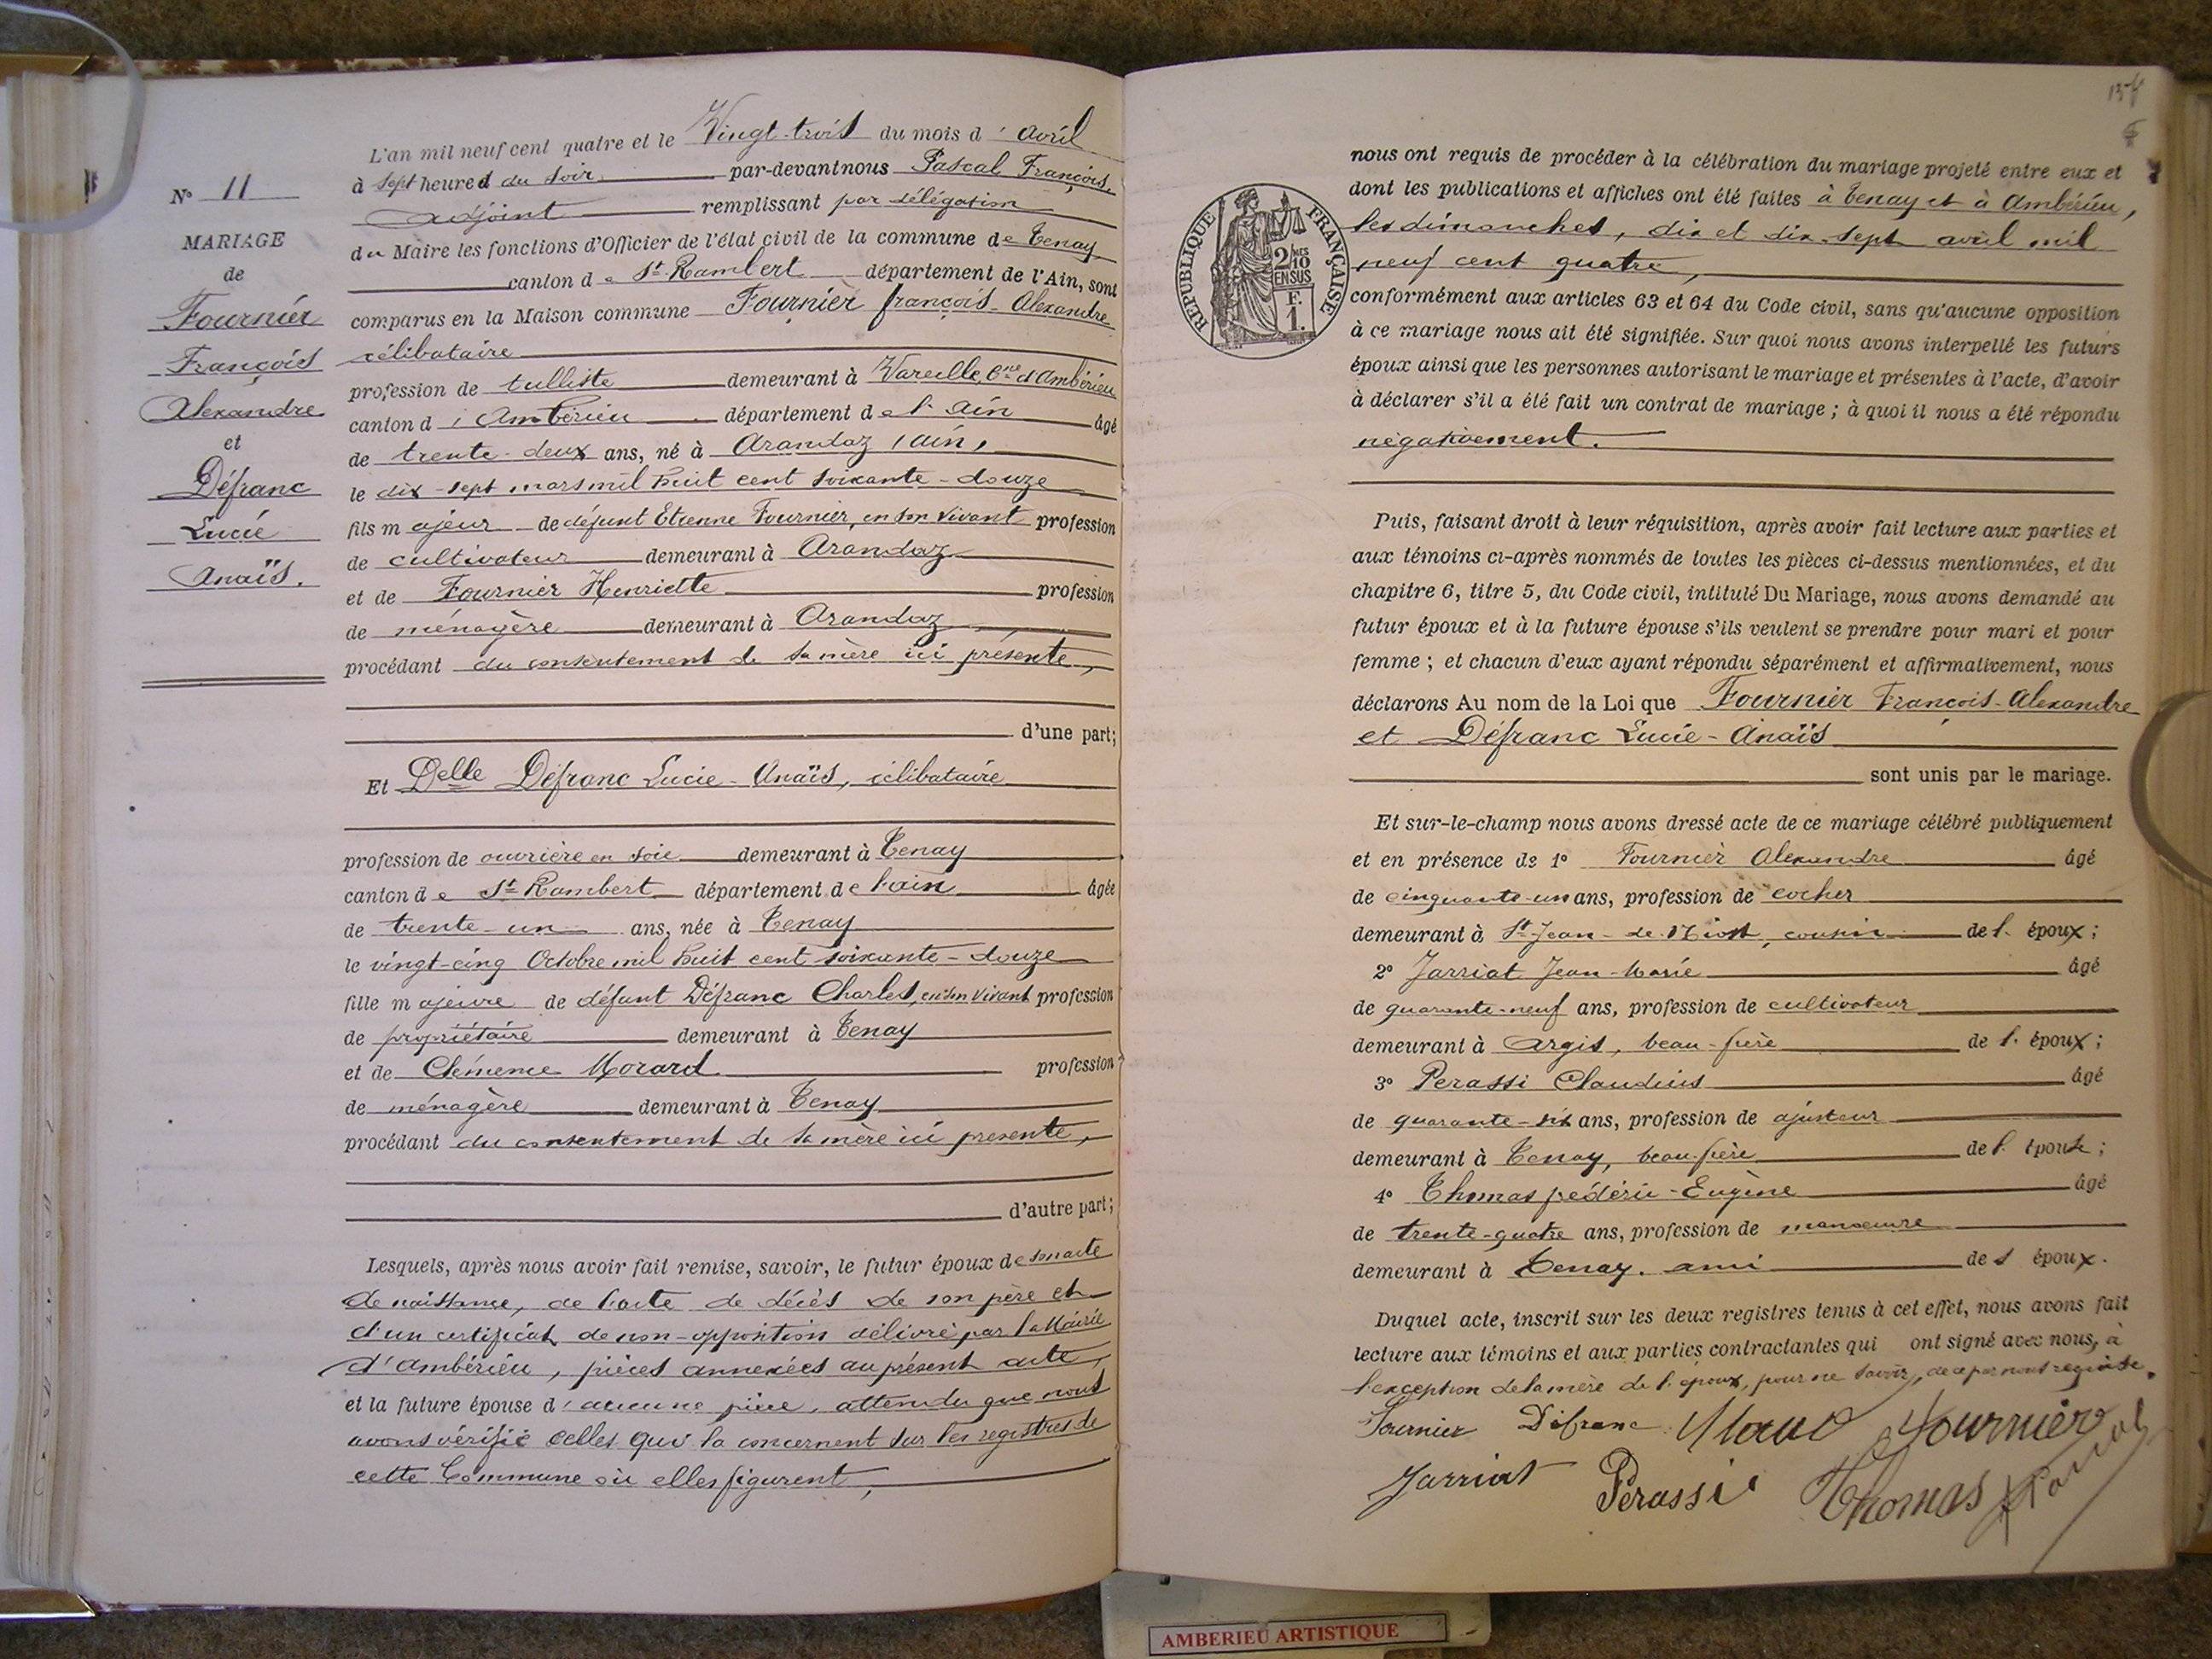 N° 11
MARIAGE
de
Fournier
François
Alexandre
et
Défranc
Lucie
Anaïs.
L'an mil neuf cent quatre et le Vingt-trois du mois d'avril
à sept heures du soir par-devant nous Pascal François
adjoint remplissant par délégation
du Maire les fonctions d'Officier de l'état civil de la commune de Tenay
canton de St Rambert département de l'Ain, sont
comparus en la Maison commune Fournier françois-Alexandre
célibataire
profession de tulliste demeurant à Vareille, Cne d'Ambérieu
canton d'Ambérieu département de l'Ain âgé
de trente-deux ans, né à Arandaz (Ain)
le dix-sept mars mil huit cent soixante-douze
fils majeur de défunt Etienne Fournier, en son vivant profession
de cultivateur demeurant à Arandaz
et de Fournier Henriette profession
de ménagère demeurant à Arandaz
procédant du consentement de sa mère ici présente,
d'une part;
Et Delle Défranc Lucie-Anaïs, célibataire
profession de ouvrière en soie demeurant à Tenay
canton de St Rambert département de l'ain âgée
de trente-un ans, née à Tenay
le vingt-cinq Octobre mil huit cent soixante-douze
fille majeure de défunt Défranc Charles, en son vivant profession
de propriétaire demeurant à Tenay
et de Clémence Morard profession
de ménagère demeurant à Tenay
procédant du consentement de sa mère ici presente,
d'autre part;
Lesquels, après nous avoir fait remise, savoir, le futur époux de son acte
de naissance, de l'acte de décès de son père et
d'un certificat de non-opposition délivré par la Mairie
d'ambérieu, pièces annexées au présent acte,
et la future épouse d'aucune pièce, attendu que nous
avons vérifié celles qui la concernent sur les registres de
cette Commune où elles figurent,
nous ont requis de procéder à la célébration du mariage projeté entre eux et
dont les publications et affiches ont été faites à Tenay et à Ambérieu,
les dimanches, dix et dix-sept avril mil
neuf cent quatre,
RÉPUBLIQUE FRANÇAISE
2/10 MES
EN SUS
F.
1.
conformément aux articles 63 et 64 du Code civil, sans qu'aucune opposition
à ce mariage nous ait été signifiée. Sur quoi nous avons interpellé les futurs
époux ainsi que les personnes autorisant le mariage et présentes à l'acte, d'avoir
à déclarer s'il a été fait un contrat de mariage; à quoi il nous a été répondu
négativement.
Puis, faisant droit à leur réquisition, après avoir fait lecture aux parties et
aux témoins ci-après nommés de toutes les pièces ci-dessus mentionnées, et du
chapitre 6, titre 5, du Code civil, intitulé Du Mariage, nous avons demandé au
futur époux et à la future épouse s'ils veulent se prendre pour mari et pour
femme; et chacun d'eux ayant répondu séparément et affirmativement, nous
déclarons Au nom de la Loi que Fournier François-Alexandre
et Défranc Lucie-Anaïs
sont unis par le mariage.
Et sur-le-champ nous avons dressé acte de ce mariage célébré publiquement
et en présence de 1° Fournier Alexandre âgé
de cinquante-un ans, profession de cocher
demeurant à St-Jean-de-Niost, cousin de l'époux;
2° Jarriat Jean-Marie âgé
de quarante-neuf ans, profession de cultivateur
demeurant à Argis, beau-frère de l'époux;
3° Perassi Claudius âgé
de quarante-six ans, profession de ajusteur
demeurant à Tenay, beau-frère de l'épouse;
4° Thomas frédéric-Eugène âgé
de trente-quatre ans, profession de manoeuvre
demeurant à Tenay. ami de l époux.
Duquel acte, inscrit sur les deux registres tenus à cet effet, nous avons fait
lecture aux témoins et aux parties contractantes qui ont signé avec nous, à
l'exception de la mère de l'époux, pour ne savoir, de ce par nous requise.
Fournier Défranc Fournier
Jarriat Perassi Thomas Pascal
AMBERIEU ARTISTIQUE